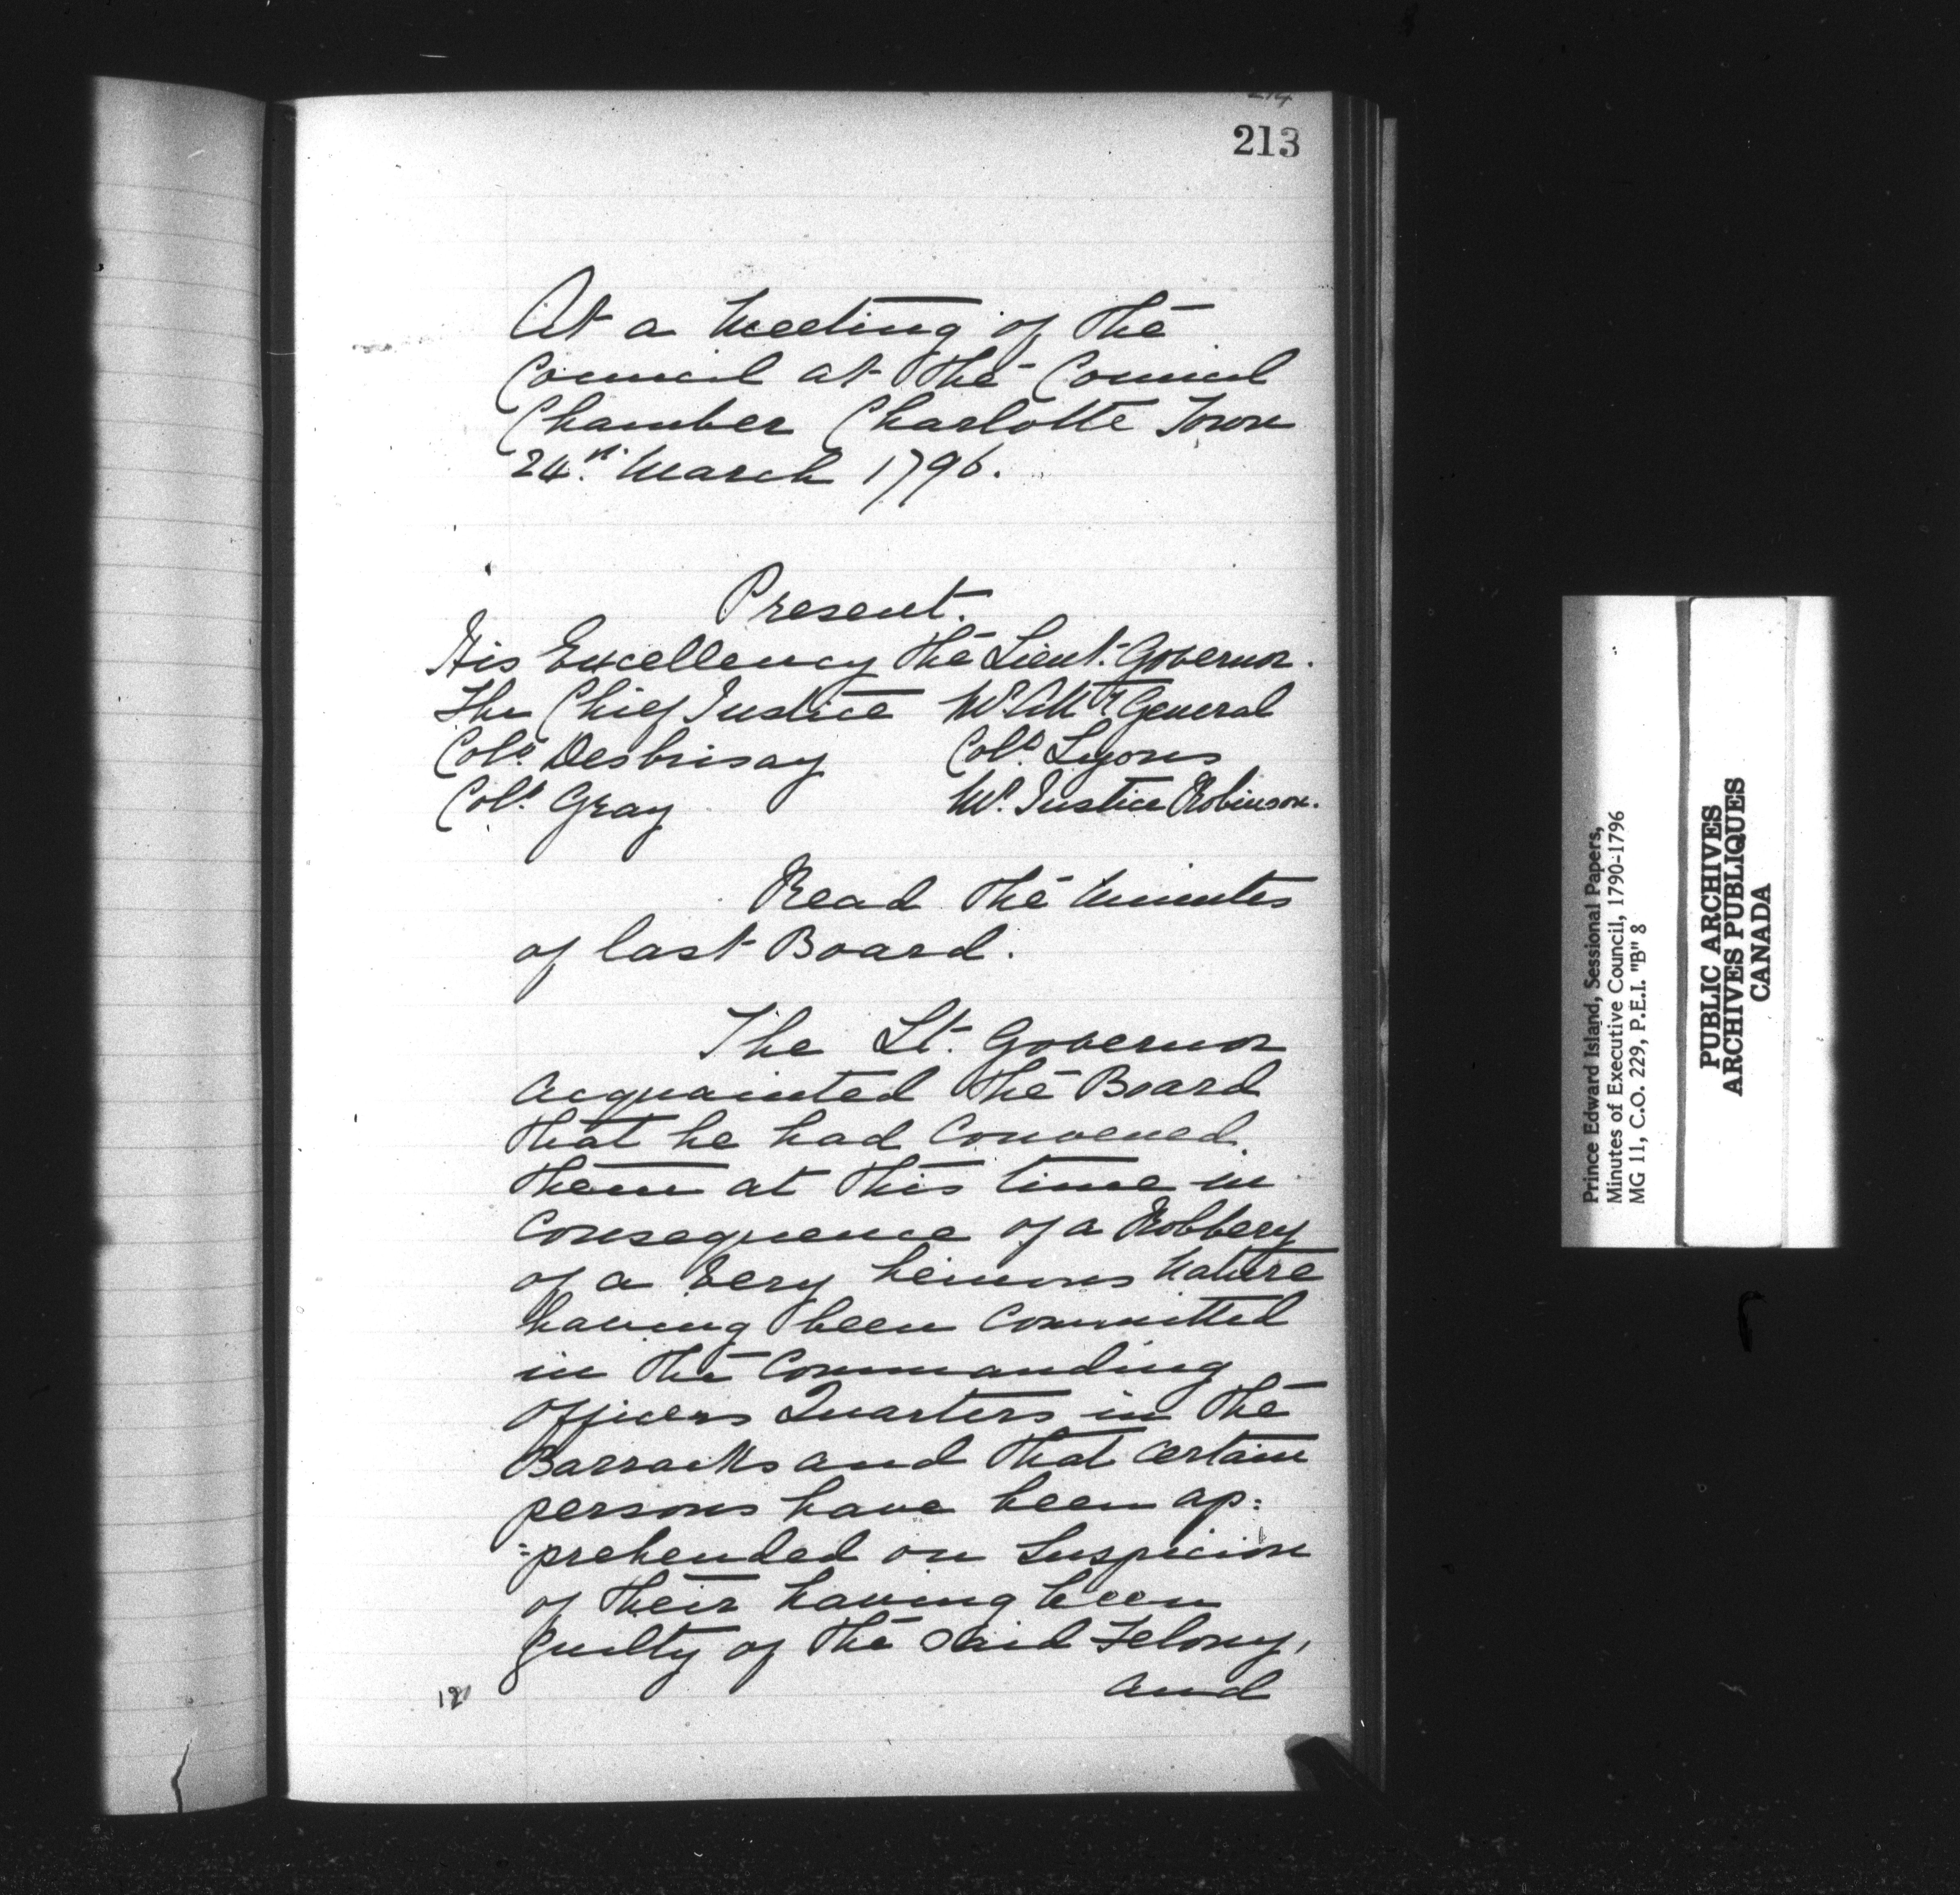 213
At a Meeting of the
Council at the Council
Chamber Charlotte Town
24th. March 1796.
Present.
His Excellency the Lieut. Governor.
The Chief Justice Mr. Atty. General
Colo. Desbrisay Colo. Lyons
Colo. Gray Mr. Justice Robinson.
Read the Minutes
of last Board.
The Lt. Governor
acquainted the Board
that he had Convened
them at this time in
Consequence of a Robbery
of a very heinous Nature
having been Committed
in the Commanding
Officers Quarters in the
Barracks and that certain
persons have been ap=
=prehended on Suspicion
of their having been
guilty of the said Felony,
and
Prince Edward Island, Sessional Papers,
Minutes of Executive Council, 1790-1796
MG 11, C.O. 229, P.E.I. "B" 8
PUBLIC ARCHIVES
ARCHIVES PUBLIQUES
CANADA